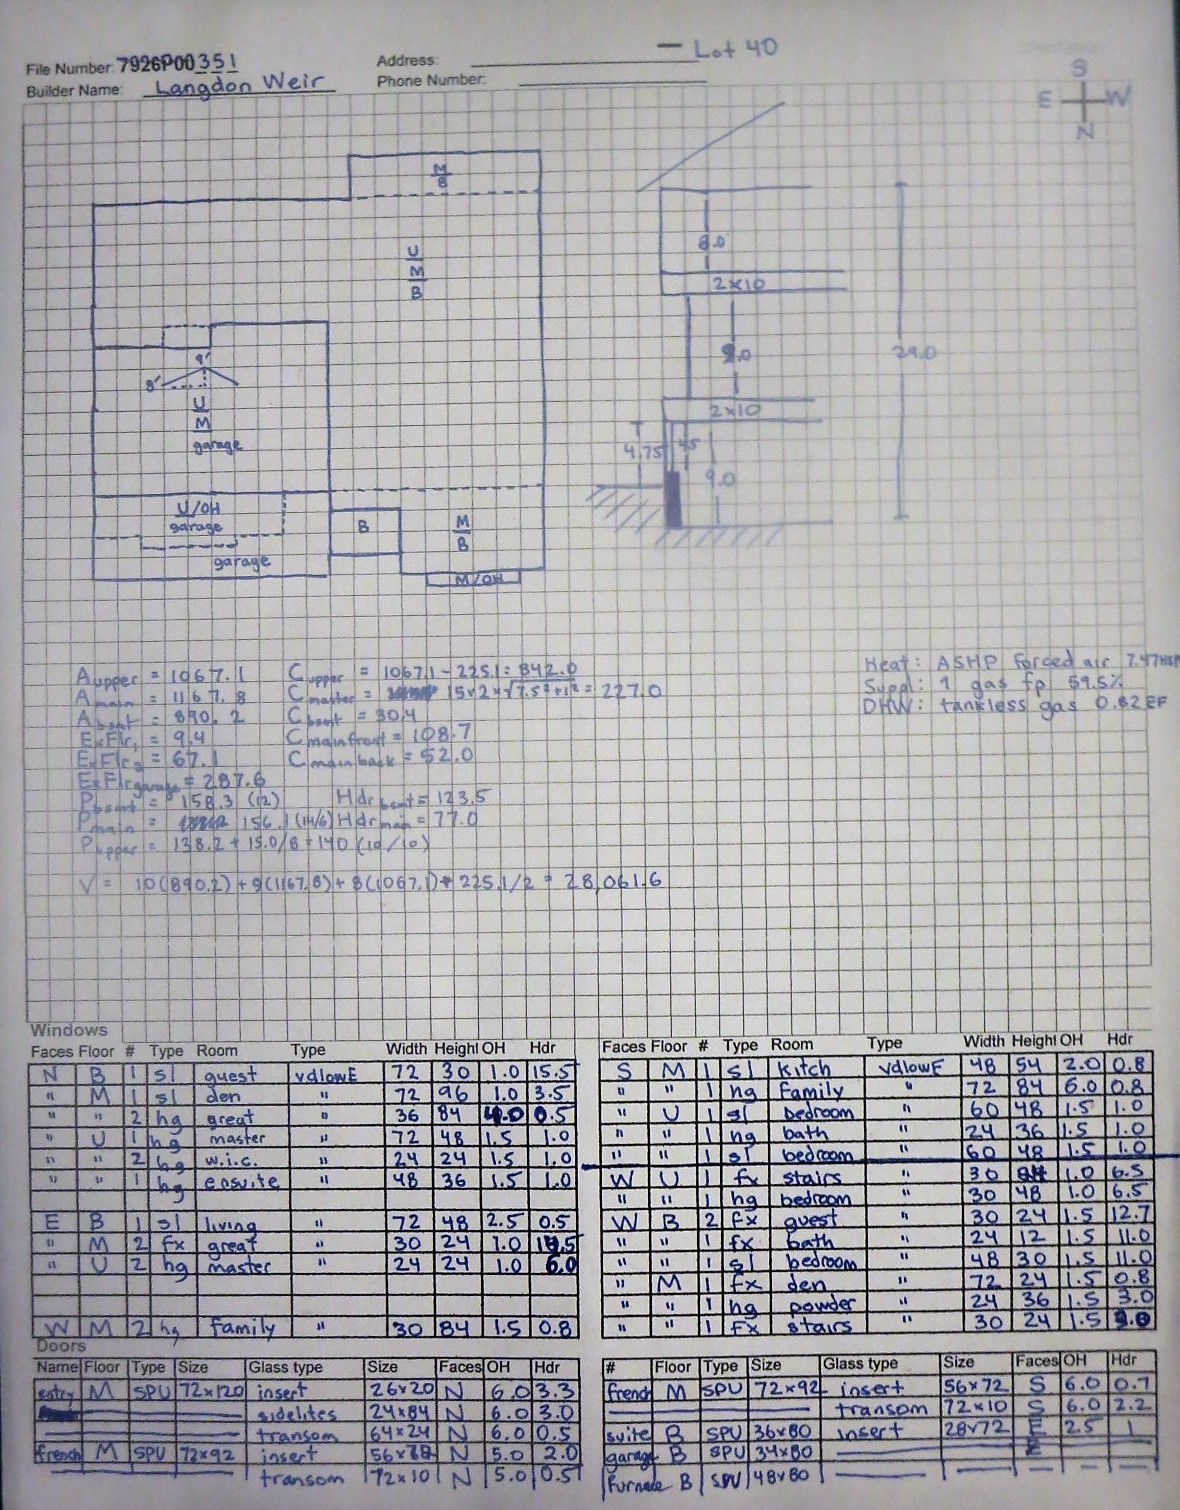 — Lot 40
File Number: 7926P00351 Address:
Builder Name: Langdon Weir Phone Number:
S
E W
N
M
B
U
M
B
8.0
2x10
9.0
29.0
9'
8'
U
M
garage
2x10
4.75
9.0
U/OH
garage
B
M
B
garage
M/OH
A upper = 1067.1 C upper = 1067.1 - 225.1 = 842.0
A main = 1167.8 C master = 15x2x√7.5²+1² = 227.0
A bsmt = 890.2 C bsmt = 30.4
ExFlr1 = 9.4 C mainfront = 108.7
ExFlr2 = 67.1 C mainback = 52.0
ExFlr garage = 287.6
P bsmt = 158.3 (12) Hdr bsmt = 123.5
P main = 156.1 (14/6) Hdr main = 77.0
P upper = 138.2 + 15.0/8 = 140 (10/10)
V = 10(890.2)+9(1167.8)+8(1067.1)+225.1/2 = 28,061.6
Heat: ASHP forced air 7.47HSPF
Suppl: 1 gas fp 59.5%
DHW: tankless gas 0.82EF
Windows
Faces Floor # Type Room Type Width Height OH Hdr
N B 1 sl guest vdlowE 72 30 1.0 15.5
" M 1 sl den " 72 96 1.0 3.5
" " 2 hg great " 36 84 4.0 0.5
" U 1 hg master " 72 48 1.5 1.0
" " 2 hg w.i.c. " 24 24 1.5 1.0
" " 1 hg ensuite " 48 36 1.5 1.0
E B 1 sl living " 72 48 2.5 0.5
" M 2 fx great " 30 24 1.0
" U 2 hg master " 24 24 1.0 6.0
W M 2 hg family " 30 84 1.5 0.8
Faces Floor # Type Room Type Width Height OH Hdr
S M 1 sl kitch vdlowE 48 54 2.0 0.8
" " 1 hg family " 72 84 6.0 0.8
" U 1 sl bedroom " 60 48 1.5 1.0
" " 1 hg bath " 24 36 1.5 1.0
" " 1 sl bedroom " 60 48 1.5 1.0
W U 1 fx stairs " 30 1.0 6.5
" " 1 hg bedroom 30 48 1.0 6.5
W B 2 fx guest " 30 24 1.5 12.7
" " 1 fx bath " 24 12 1.5 11.0
" " 1 sl bedroom " 48 30 1.5 11.0
" M 1 fx den " 72 24 1.5 0.8
" " 1 hg powder " 24 36 1.5 3.0
" " 1 fx stairs " 30 24 1.5
Doors
Name Floor Type Size Glass type Size Faces OH Hdr
entry M SPU 72x120 insert 26x20 N 6.0 3.3
sidelites 24x84 N 6.0 3.0
transom 64x24 N 6.0 0.5
french M SPU 72x92 insert N 5.0 2.0
transom 72x10 N 5.0 0.5
# Floor Type Size Glass type Size Faces OH Hdr
french M SPU 72x92 insert 56x72 S 6.0 0.7
transom 72x10 S 6.0 2.2
suite B SPU 36x80 insert 28x72 E 2.5 1
garage B SPU 34x80 E
furnace B SPU 48x80